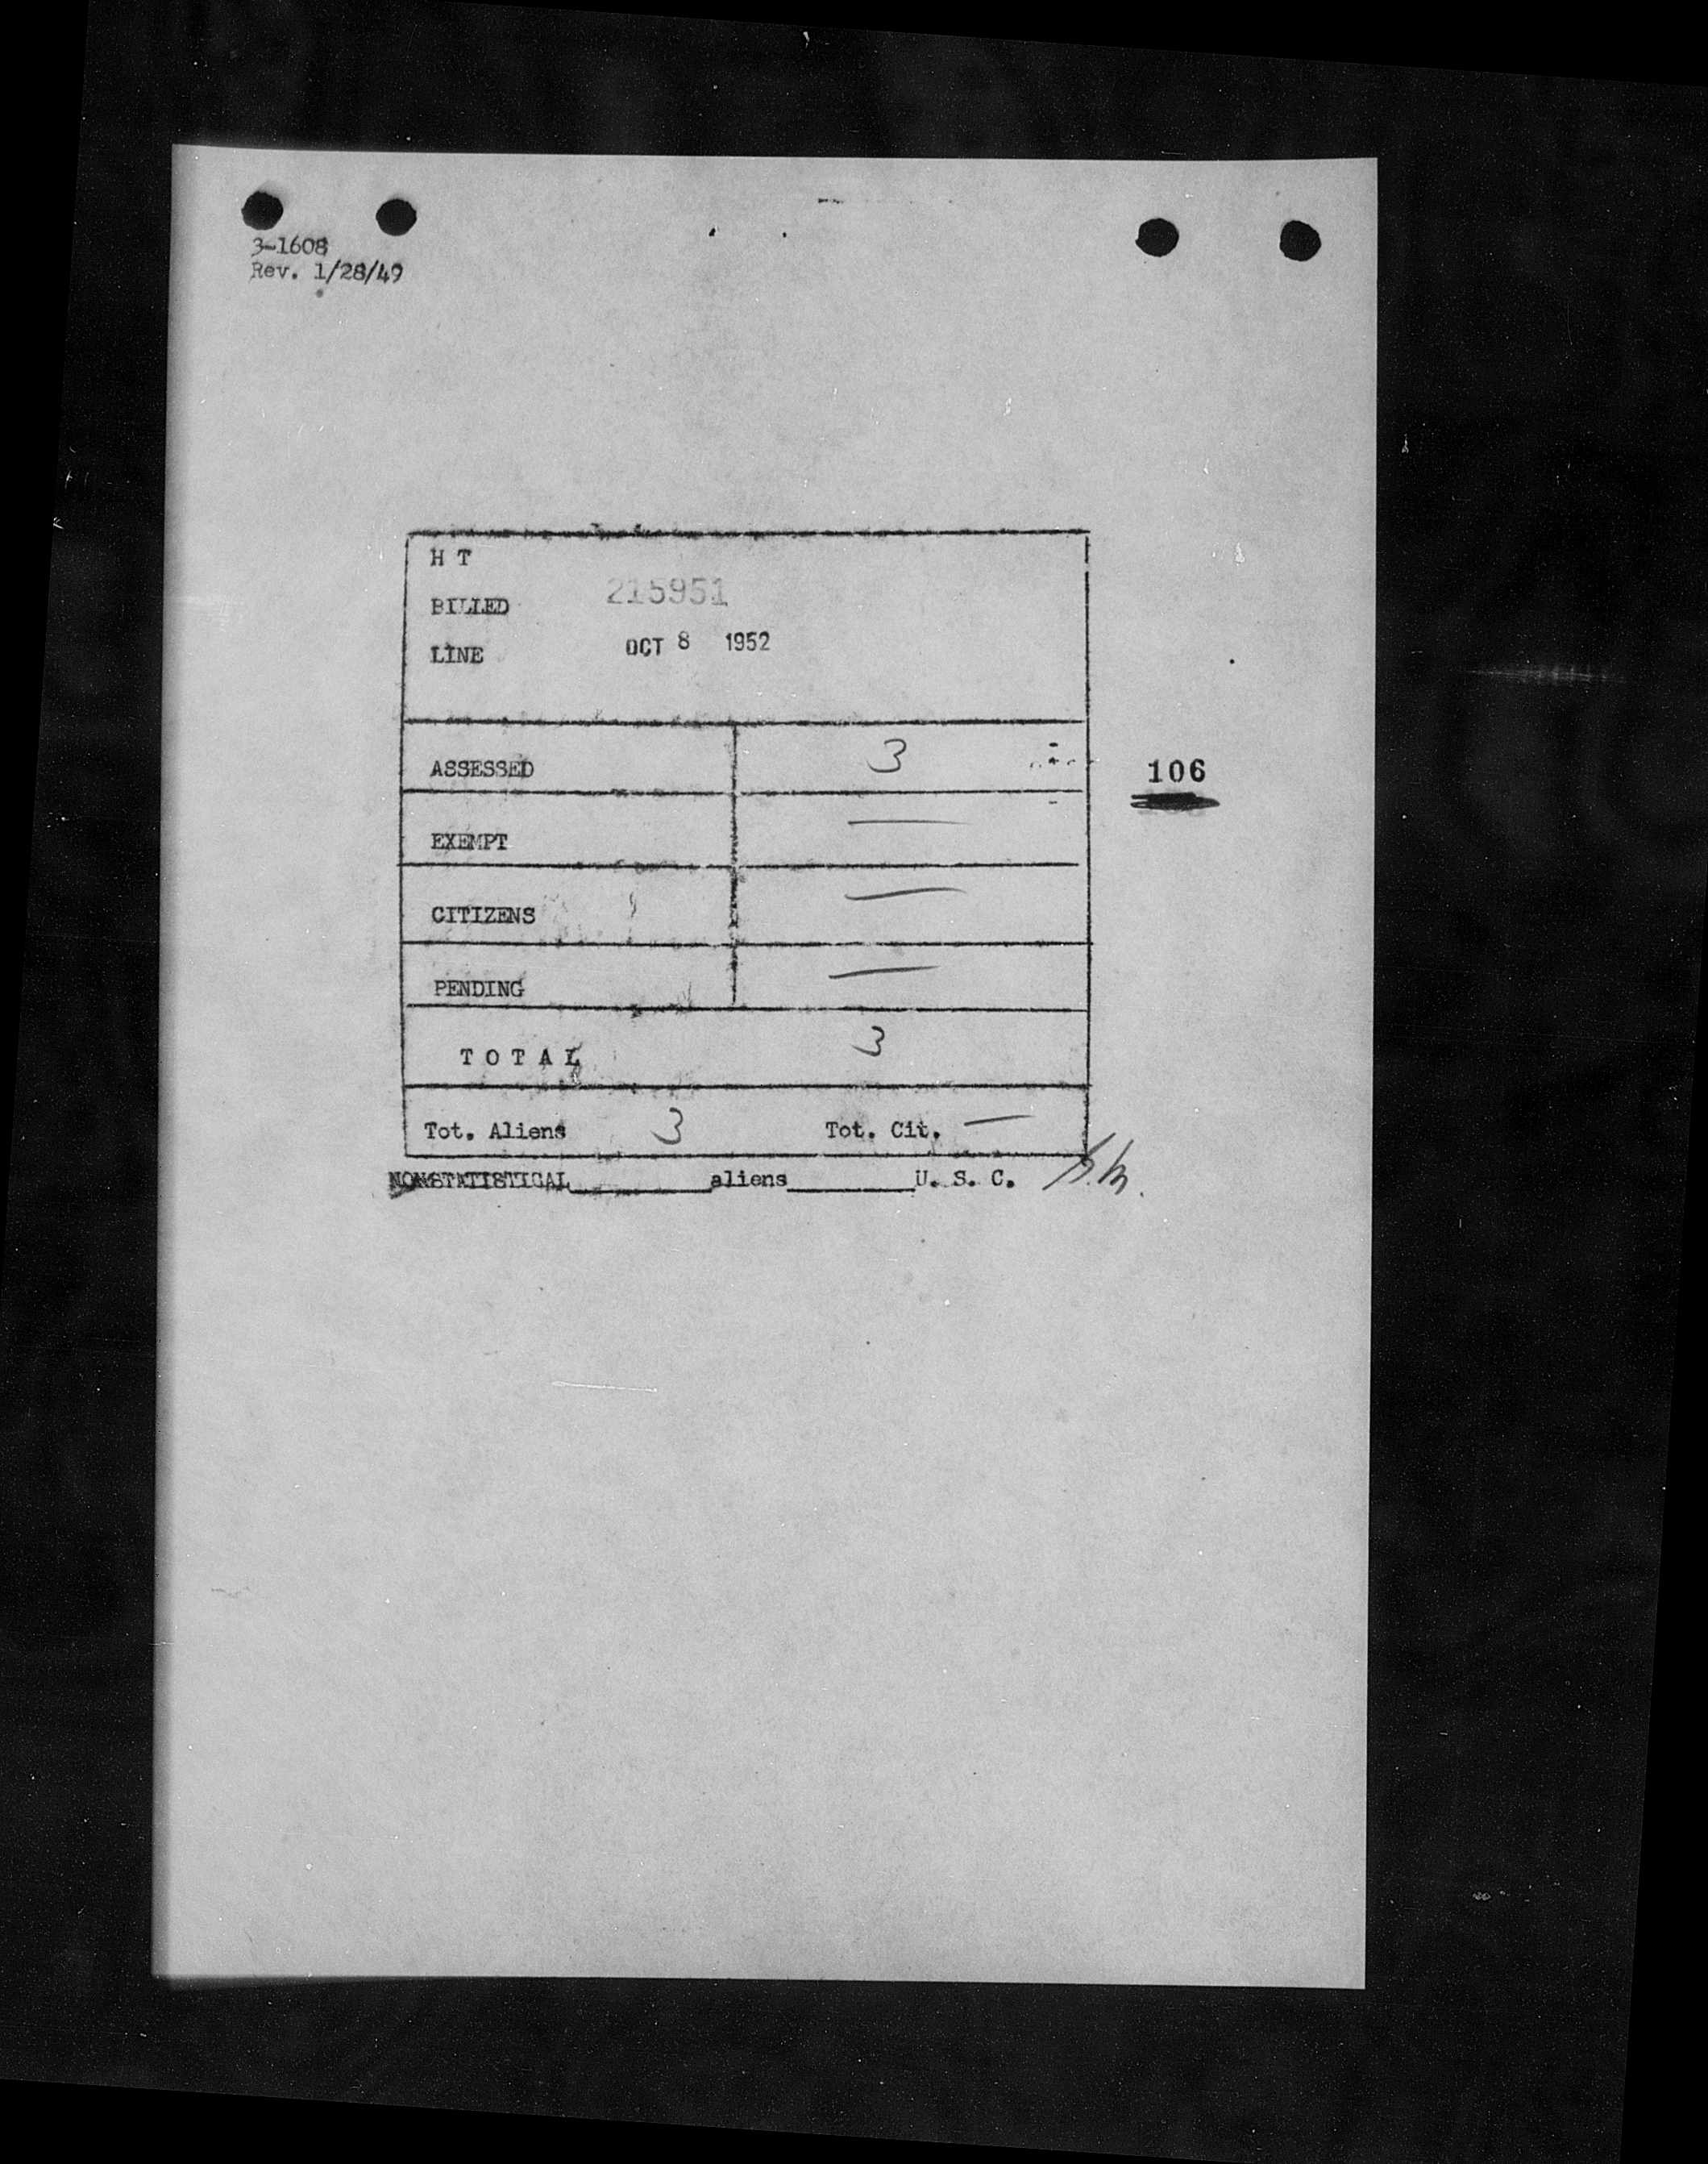 3-1608
Rev. 1/28/49
H T
BILLED 215951
LINE OCT 8 1952
ASSESSED 3
106
EXEMPT —
CITIZENS —
PENDING —
T O T A L 3
Tot. Aliens 3 Tot. Cit. —
NONSTATISTICAL________aliens________U. S. C.